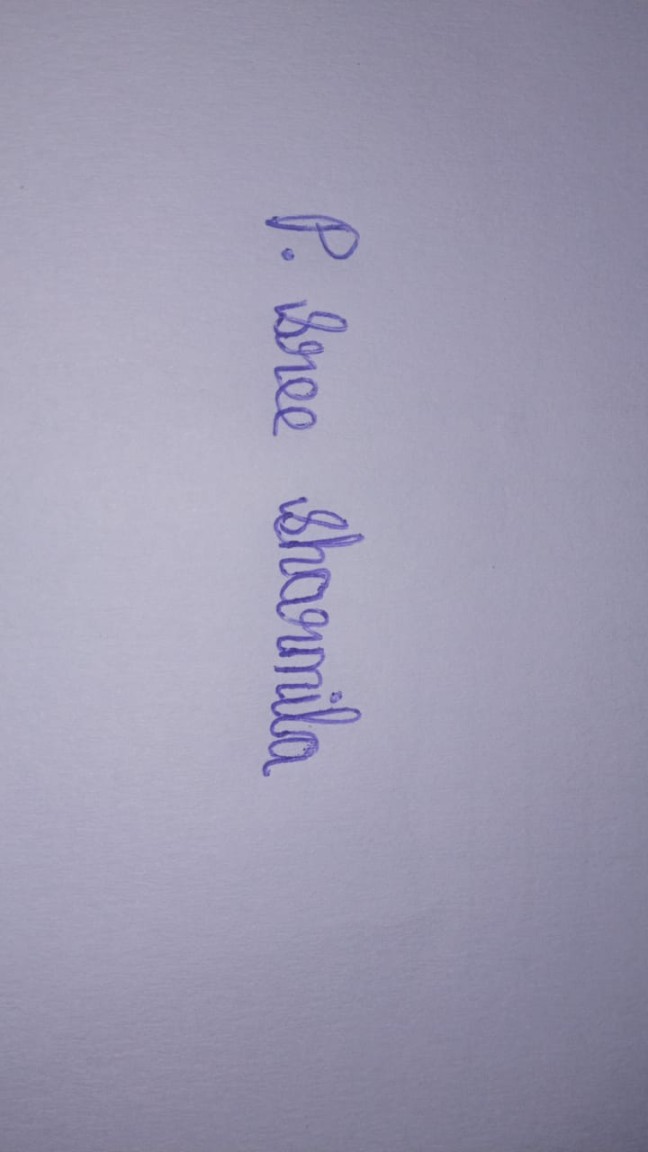 P. sree sharmila